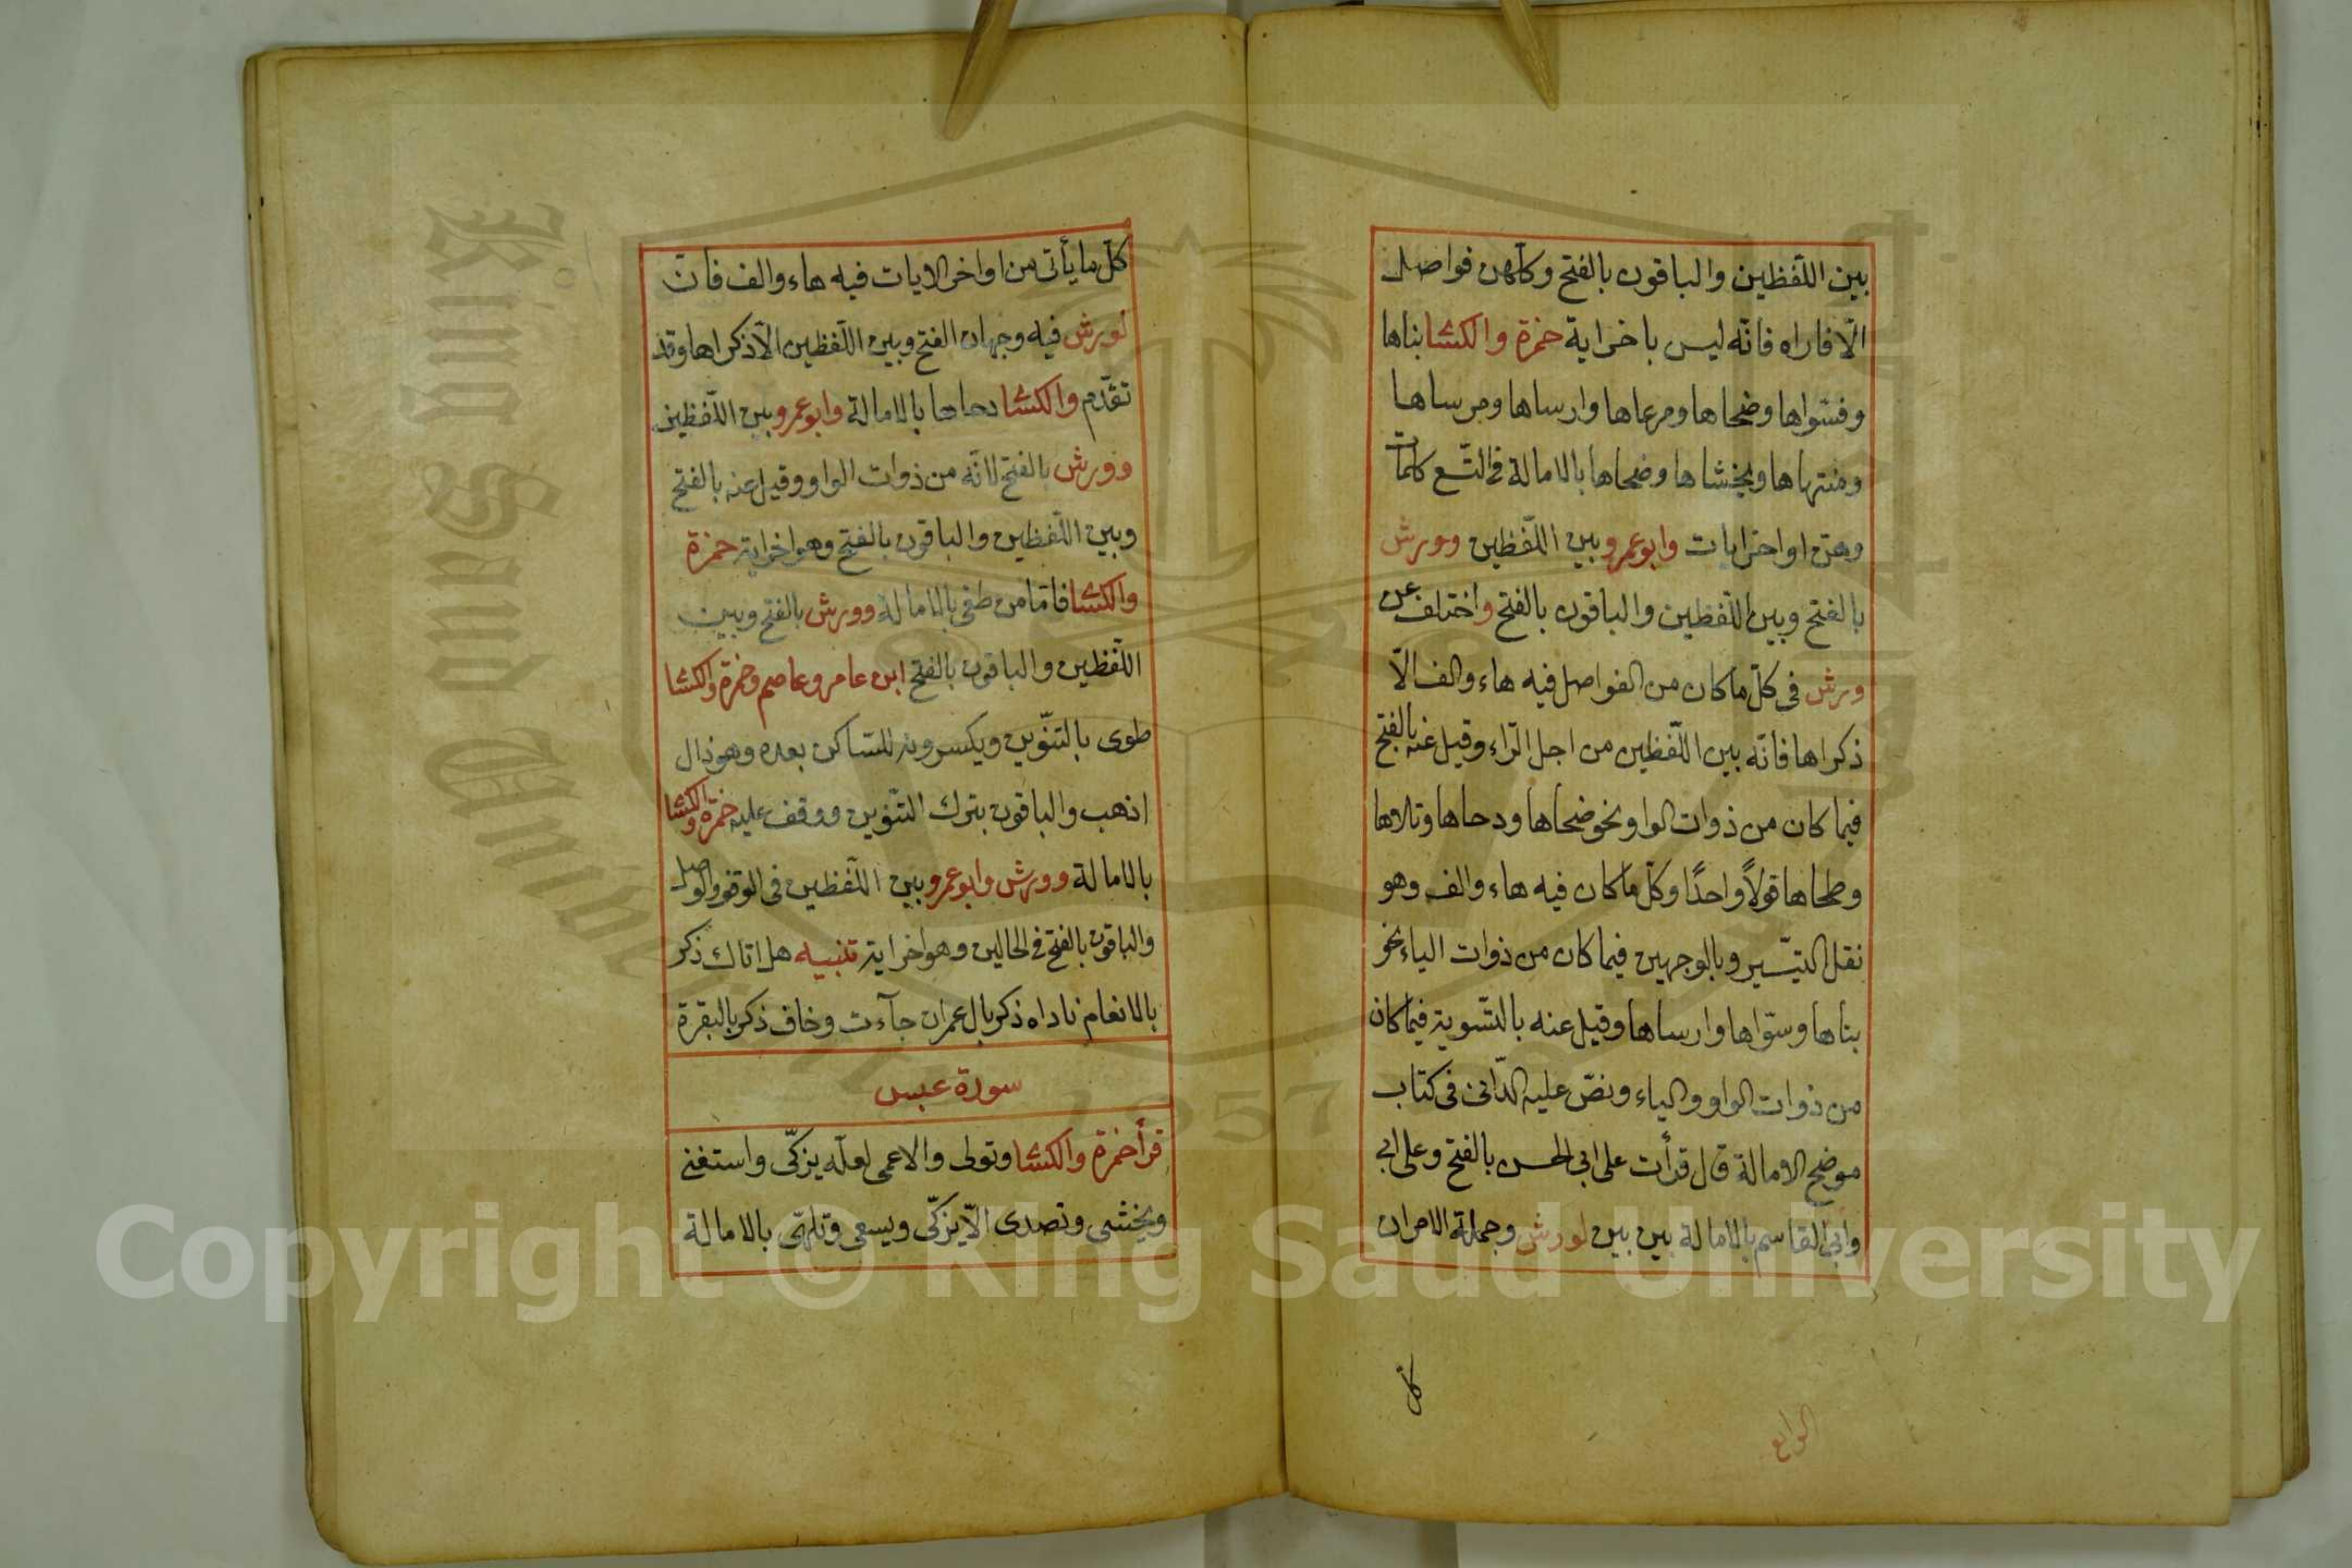 بين اللّفظين والباقون بالفتح وكلّهن فواصل
الّا فاراه فانّه ليس باخراية حمزة والكسا بناها
وفسّواها وضحاها ومرعاها وارساها ومرساها
ومنتهاها ويخشاها وضحاها بالامالة في التّسع كلمات
وهنّ اواخر ايات وابو عمرو بين اللّفظين وورش
بالفتح وبين اللّفظين والباقون بالفتح واختلف عن
ورش فى كلّ ما كان من الفواصل فيه هاء والف الّا
ذكراها فانّه بين اللّفظين من اجل الرّاء وقيل عنه بالفتح
فيما كان من ذوات الواو نحو ضحاها ودحاها وتلاها
وطحاها قولاً واحدًا وكلّ ما كان فيه هاء والف وهو
نقل التيّسير وبالوجهين فيما كان من ذوات الياء نحو
بناها وسوّاها وارساها وقيل عنه بالتّسوية فيما كان
من ذوات الواو والياء ونصّ عليه الدّانى فى كتاب
موضح الامالة قال قرأت على ابى الحسن بالفتح وعلى ابى
وابى القاسم بالامالة بين بين لورش وجملة الامر ان
كلّ
الرابع
كلّ ما يأتى من اواخر الايات فيه هاء والف فانّ
لورش فيه وجهان الفتح وبين اللّفظين الّا ذكراها وقد
تقدّم والكسا دحاها بالامالة وابو عمرو بين اللّفظين
وورش بالفتح لانّه من ذوات الواو وقيل عنه بالفتح
وبين اللّفظين والباقون بالفتح وهو اخراية حمزة
والكسا فامّا من طغى بالامالة وورش بالفتح وبين
اللّفظين والباقون بالفتح ابن عامر وعاصم وحمزة والكسا
طوى بالتنّوين ويكسرونه للسّاكن بعده وهو ذال
اذهب والباقون بترك التنّوين ووقف عليه حمزة والكسا
بالامالة وورش وابو عمرو بين اللّفظين فى الوقف والوصل
والباقون بالفتح فى الحالين وهو اخراية تنبيه هل اتاك ذكر
بالانعام ناداه ذكر بال عمران جآءت وخاف ذكر بالبقرة
سورة عبس
قرأ حمزة والكسا وتولى والاعمى لعلّه يزكّى واستغنى
ويخشى وتصدى الّا يزكّى ويسعى وتلهّى بالامالة
King Saud University
1957
Copyright © King Saud University